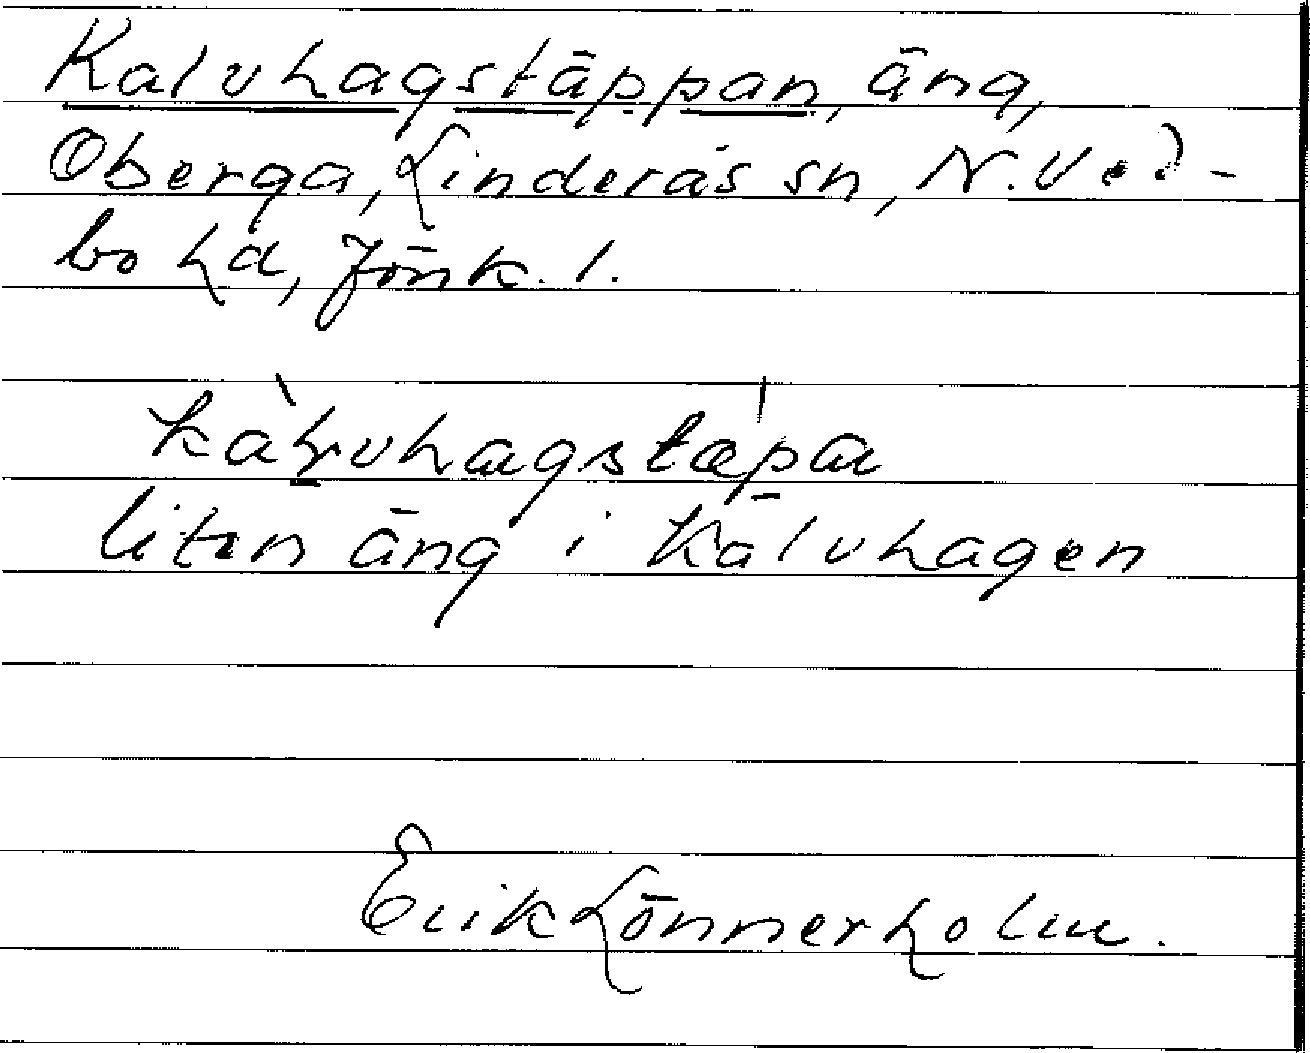 Kalvhagstäppan, äng,
Oberga, Linderås sn, N. Ved-
bo hd, Jönk. l.
liten äng i Kalvhagen
Erik Lönnerholm.